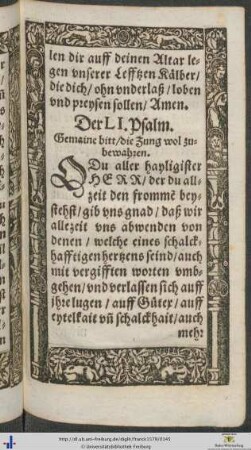 len dir auff deinen Altar le-
gen vnserer Lefftzen Kälber/
die dich/ ohn vnderlaß/ loben
vnd preysen sollen/ Amen.
Der LI. Psalm.
Gemaine bitt/ die Zung wol zu-
bewahren.
O Du aller hayligister
HERR/ der du all-
zeit den frommē bey-
stehst/ gib vns gnad/ daß wir
allezeit vns abwenden von
denen/ welche eines schalck-
hafftigen hertzens seind/ auch
mit vergifften worten vmb-
gehen/ vnd verlassen sich auff
jhre lugen/ auff Güter/ auff
eytelkait vñ schalckhait/ auch
mehr
http://dl.ub.uni-freiburg.de/diglit/franck1576/0143
© Universitätsbibliothek Freiburg
Baden-Württemberg